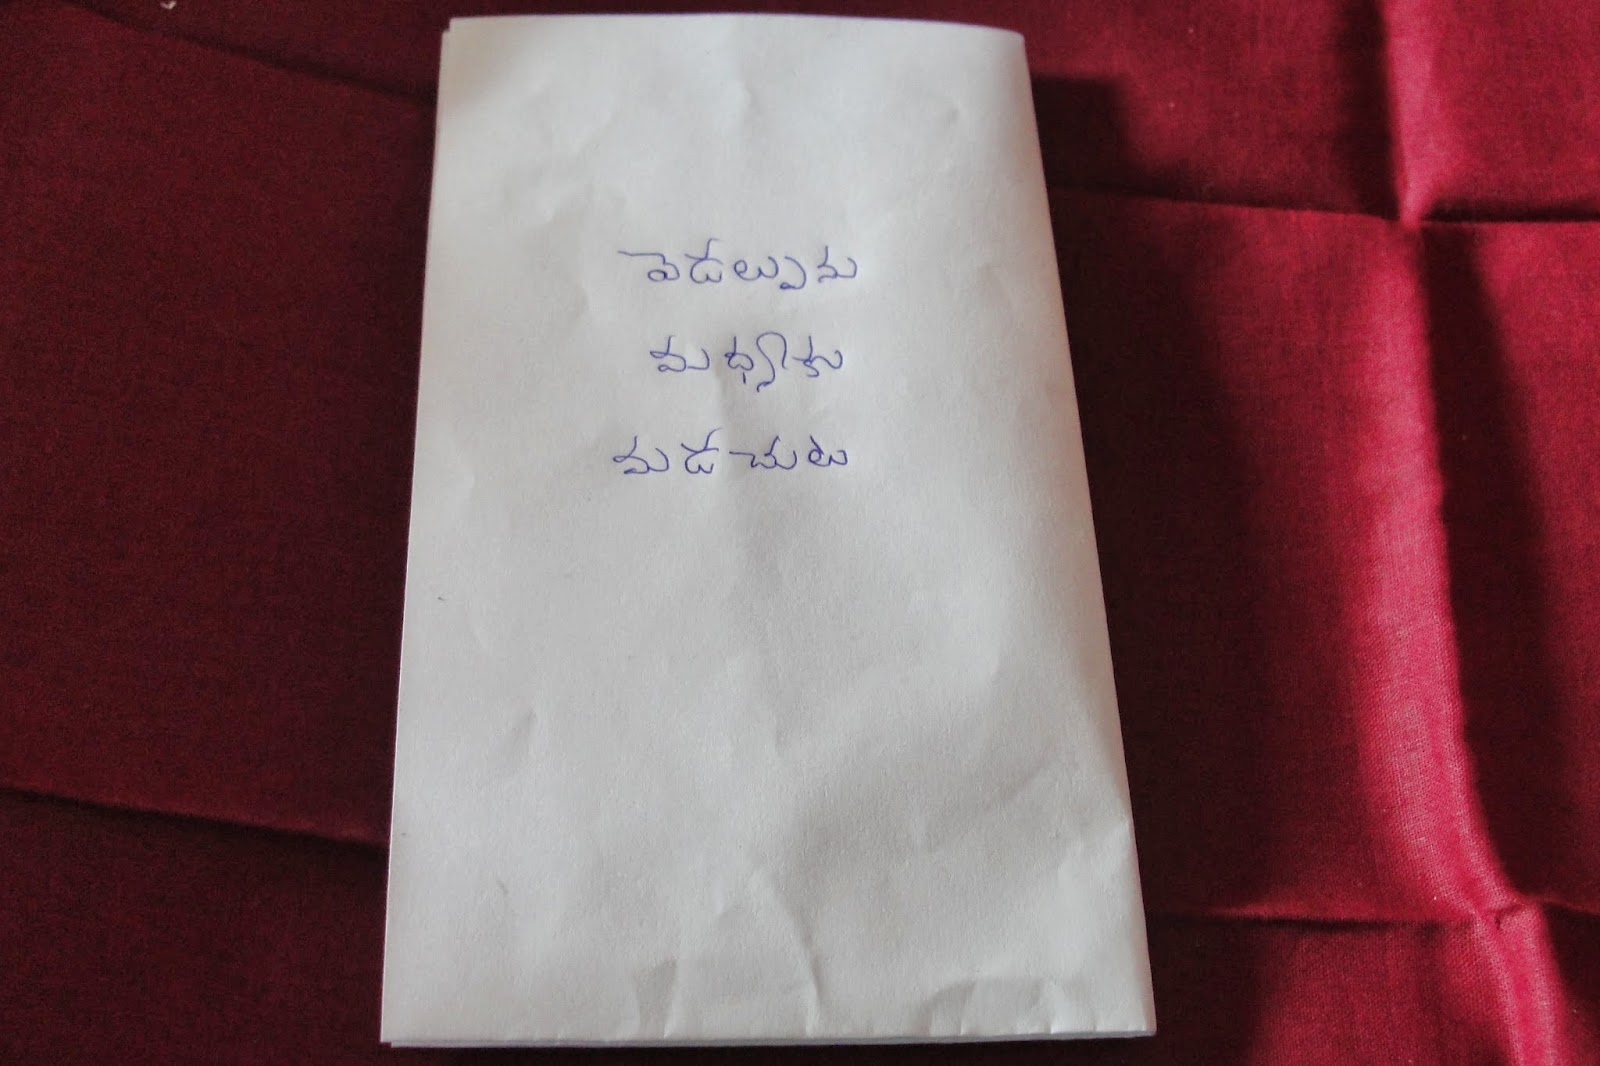 వెడల్పును
మధ్యకు
మడచుట